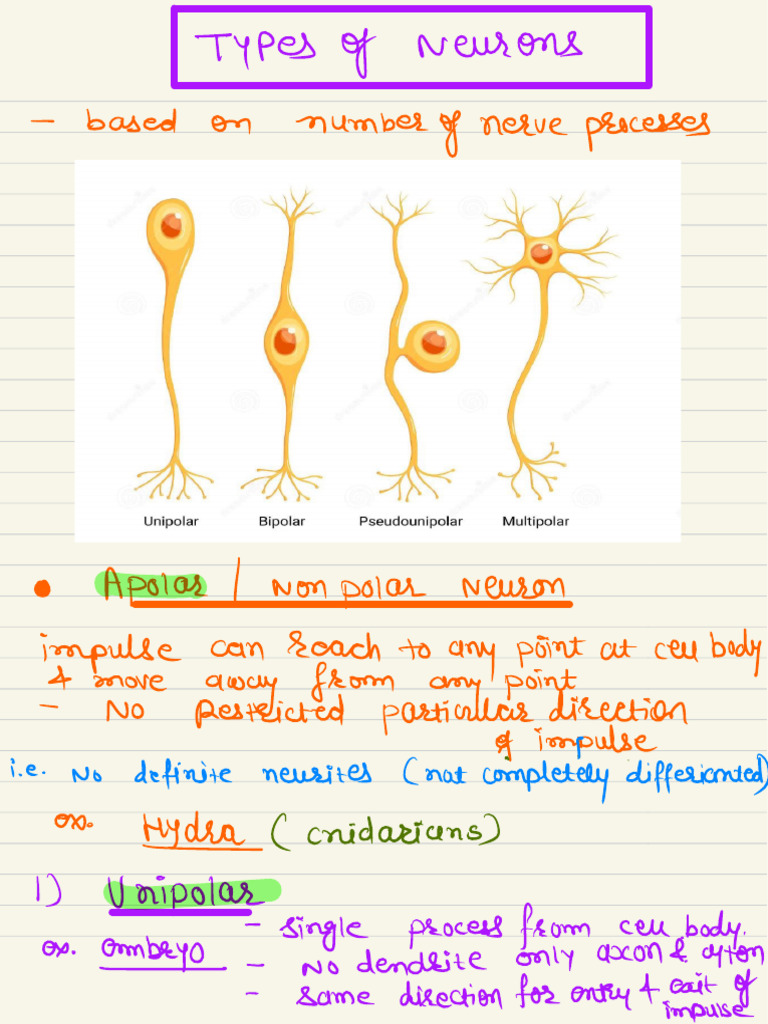 Types of Neurons
- based on number of nerve processes
Unipolar Bipolar Pseudounipolar Multipolar
• Apolar / Non polar Neuron
impulse can reach to any point at cell body
& move away from any point
- No restricted particular direction
of impulse
i.e. No definite neurites (not completely differicnted)
ex. Hydra (cnidarians)
1) Unipolar
- single process from cell body.
ex. embryo
- No dendrite only axon & cyton
- same direction for entry & exit of
impulse